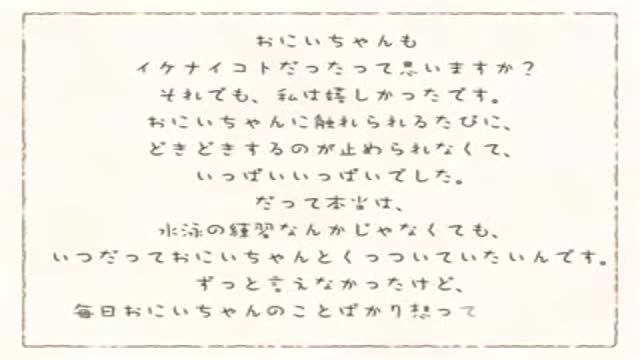 おにいちゃんも
イケナイコトだったって思いますか？
それでも、私は嬉しかったです。
おにいちゃんに触れられるたびに、
どきどきするのが止められなくて、
いっぱいいっぱいでした。
だって本当は、
水泳の練習なんかじゃなくても、
いつだっておにいちゃんとくっついていたいんです。
ずっと言えなかったけど、
毎日おにいちゃんのことばかり想って